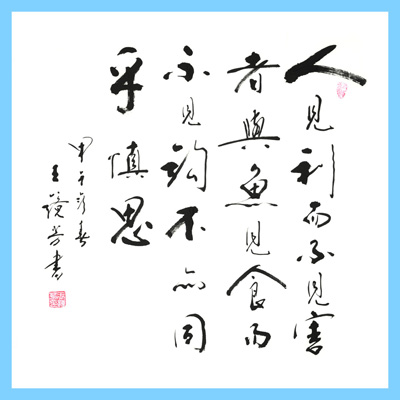 人見利而不見害
者與魚見食而
不見鈎不亦同
乎慎思
甲午新春
王鏡芳書